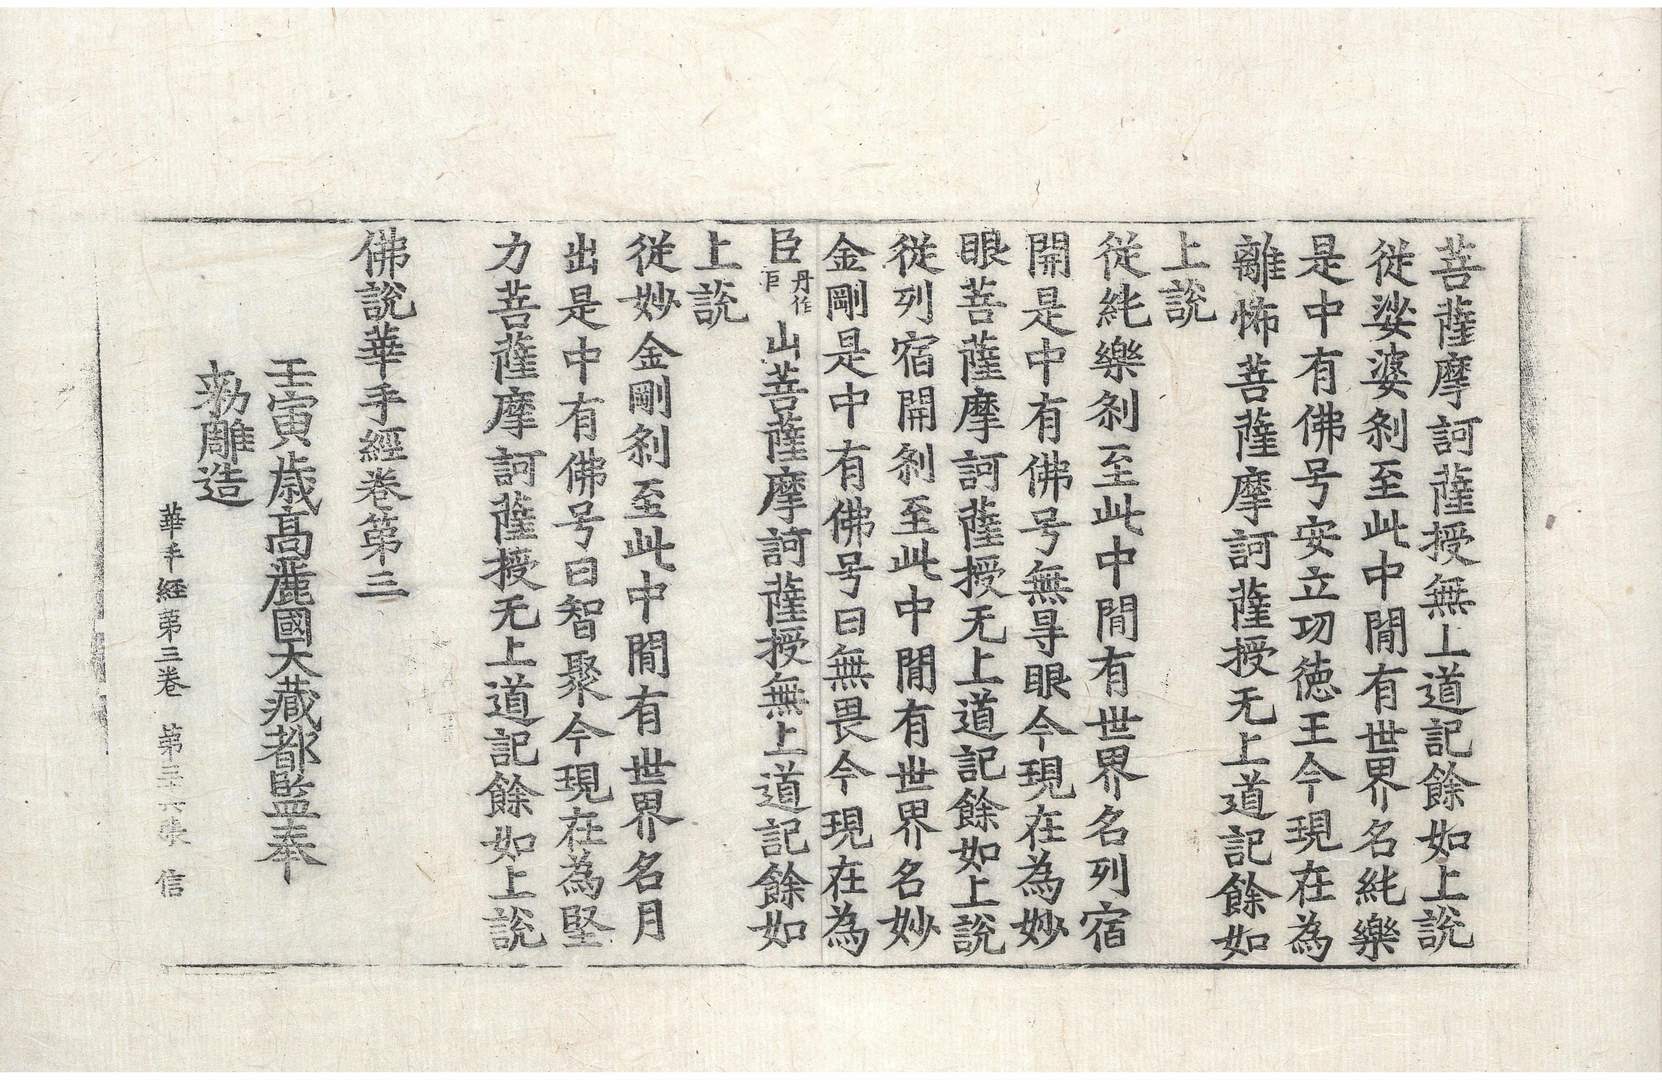 菩薩摩訶薩授無上道記餘如上說
從娑婆刹至此中閒有世界名純樂
是中有佛号安立功德王今現在為
離怖菩薩摩訶薩授无上道記餘如
上說
從純樂刹至此中閒有世界名列宿
開是中有佛号無㝵眼今現在為妙
眼菩薩摩訶薩授无上道記餘如上說
從列宿開刹至此中閒有世界名妙
金剛是中有佛号曰無畏今現在為
臣丹作巨山菩薩摩訶薩授無上道記餘如
上說
從妙金剛刹至此中閒有世界名月
出是中有佛号曰智聚今現在為堅
力菩薩摩訶薩授无上道記餘如上說
佛說華手經卷第三
壬寅歲高麗國大藏都監奉
勑雕造
華手經第三卷 第三十六張 信